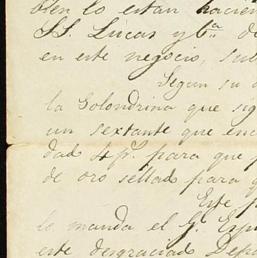 bien lo estan hacien
SS. Lucas y Cª. de
en este negocio, su
Segun su
la Golondrina que sig
un sextante que enc
dad 4 pª. para que
de oro sellad para
Este
lo manda el G. Esp
este desgraciad Depa